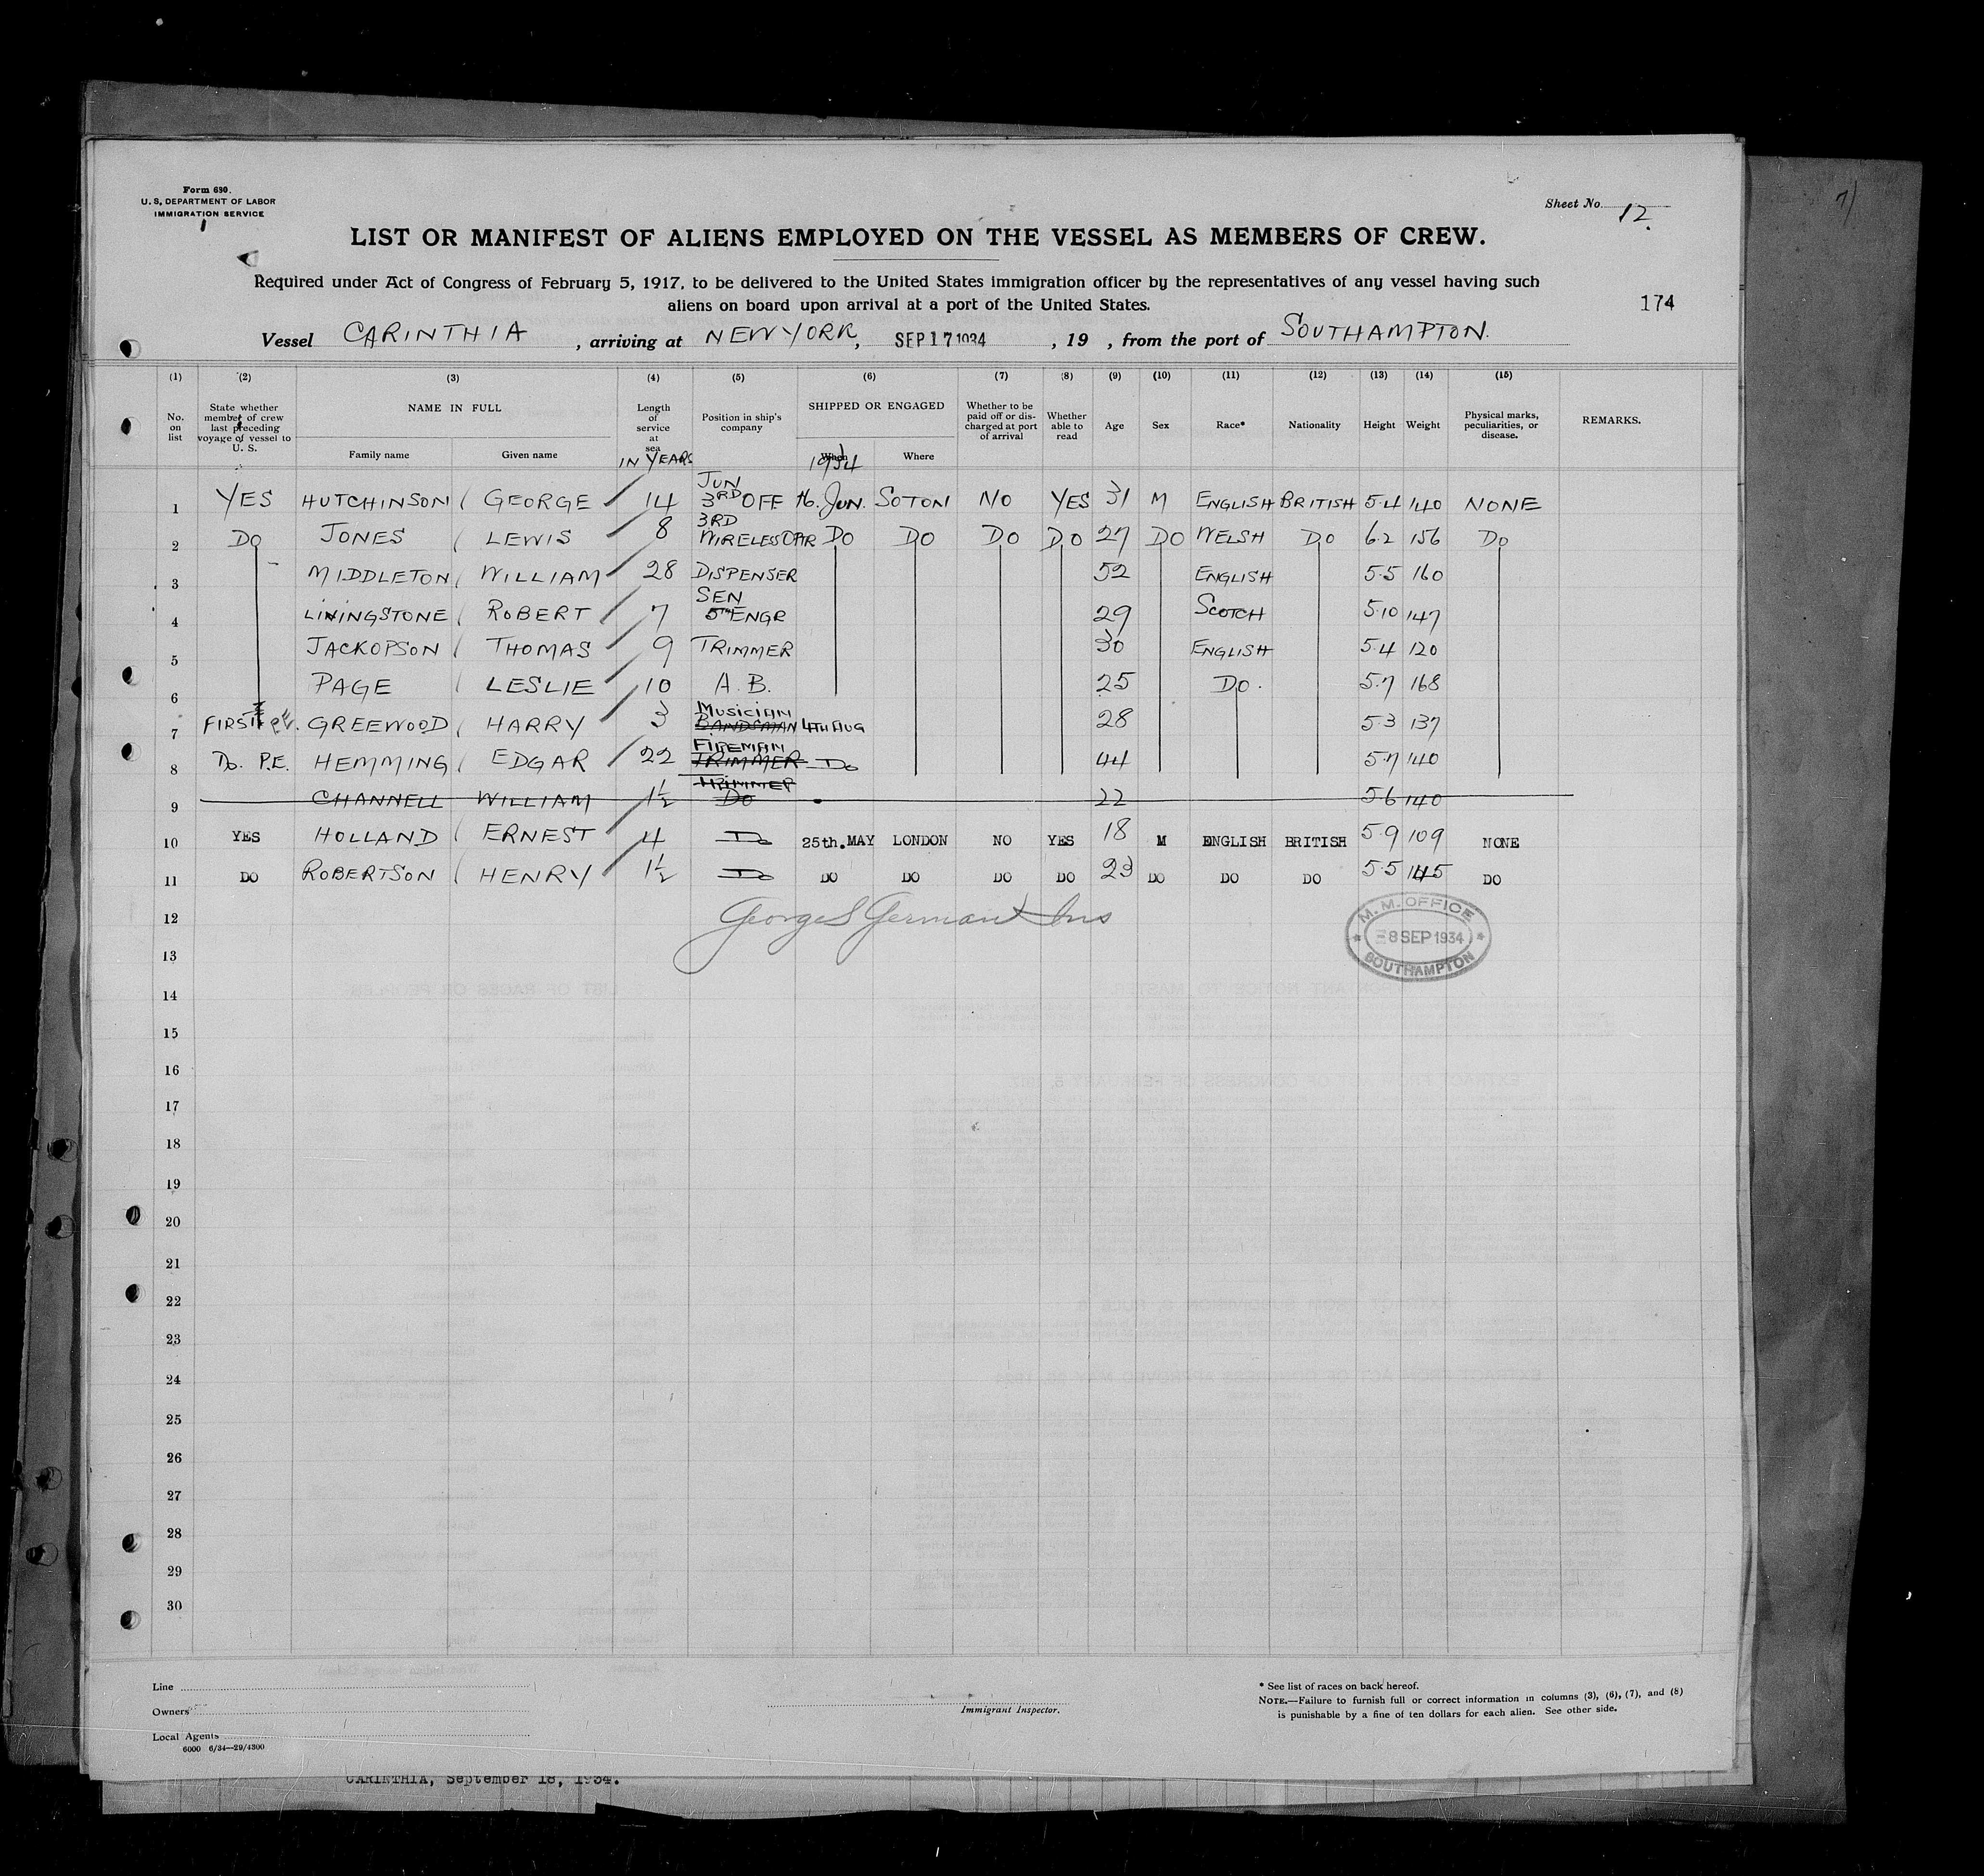 Form 680.
U. S. DEPARTMENT OF LABOR
IMMIGRATION SERVICE
Sheet No. 12.
LIST OR MANIFEST OF ALIENS EMPLOYED ON THE VESSEL AS MEMBERS OF CREW.
Required under Act of Congress of February 5, 1917, to be delivered to the United States immigration officer by the representatives of any vessel having such
aliens on board upon arrival at a port of the United States.
174
Vessel CARINTHIA, arriving at NEW YORK, SEP 17 1934, 19 , from the port of SOUTHAMPTON.
(1) (2) (3) (4) (5) (6) (7) (8) (9) (10) (11) (12) (13) (14) (15)
No. on list
State whether member of crew last preceding voyage of vessel to U. S.
NAME IN FULL
Family name Given name
Length of service at sea
IN YEARS
Position in ship's company
SHIPPED OR ENGAGED
When Where
1934
Whether to be paid off or discharged at port of arrival
Whether able to read
Age
Sex
Race*
Nationality
Height
Weight
Physical marks, peculiarities, or disease.
REMARKS.
1 YES HUTCHINSON GEORGE 14 JUN 3RD OFF 16. JUN. SOTON NO YES 31 M ENGLISH BRITISH 5.4 140 NONE
2 DO JONES LEWIS 8 3RD WIRELESS OPR DO DO DO DO 27 DO WELSH DO 6.2 156 DO
3 MIDDLETON WILLIAM 28 DISPENSER 52 ENGLISH 5.5 160
4 LIVINGSTONE ROBERT 7 SEN 5TH ENGR 29 SCOTCH 5.10 147
5 JACKOPSON THOMAS 9 TRIMMER 30 ENGLISH 5.4 120
6 PAGE LESLIE 10 A.B. 25 DO. 5.7 168
7 FIRST P.E. GREEWOOD HARRY 3 MUSICIAN BANDSMAN 4TH AUG 28 5.3 137
8 DO. P.E. HEMMING EDGAR 22 FIREMAN TRIMMER DO 44 5.7 140
9 CHANNELL WILLIAM 1½ TRIMMER DO 22 5.6 140
10 YES HOLLAND ERNEST 4 Do 25th. MAY LONDON NO YES 18 M ENGLISH BRITISH 5.9 109 NONE
11 DO ROBERTSON HENRY 1½ Do DO DO DO DO 23 DO DO DO 5.5 145 DO
12 George S German Ins
M. M. OFFICE
8 SEP 1934
SOUTHAMPTON
13
14
15
16
17
18
19
20
21
22
23
24
25
26
27
28
29
30
Line
Owners
Local Agents
6000 6/34—29/4300
Immigrant Inspector.
* See list of races on back hereof.
NOTE.—Failure to furnish full or correct information in columns (3), (6), (7), and (8)
is punishable by a fine of ten dollars for each alien. See other side.
CARINTHIA, September 18, 1934.